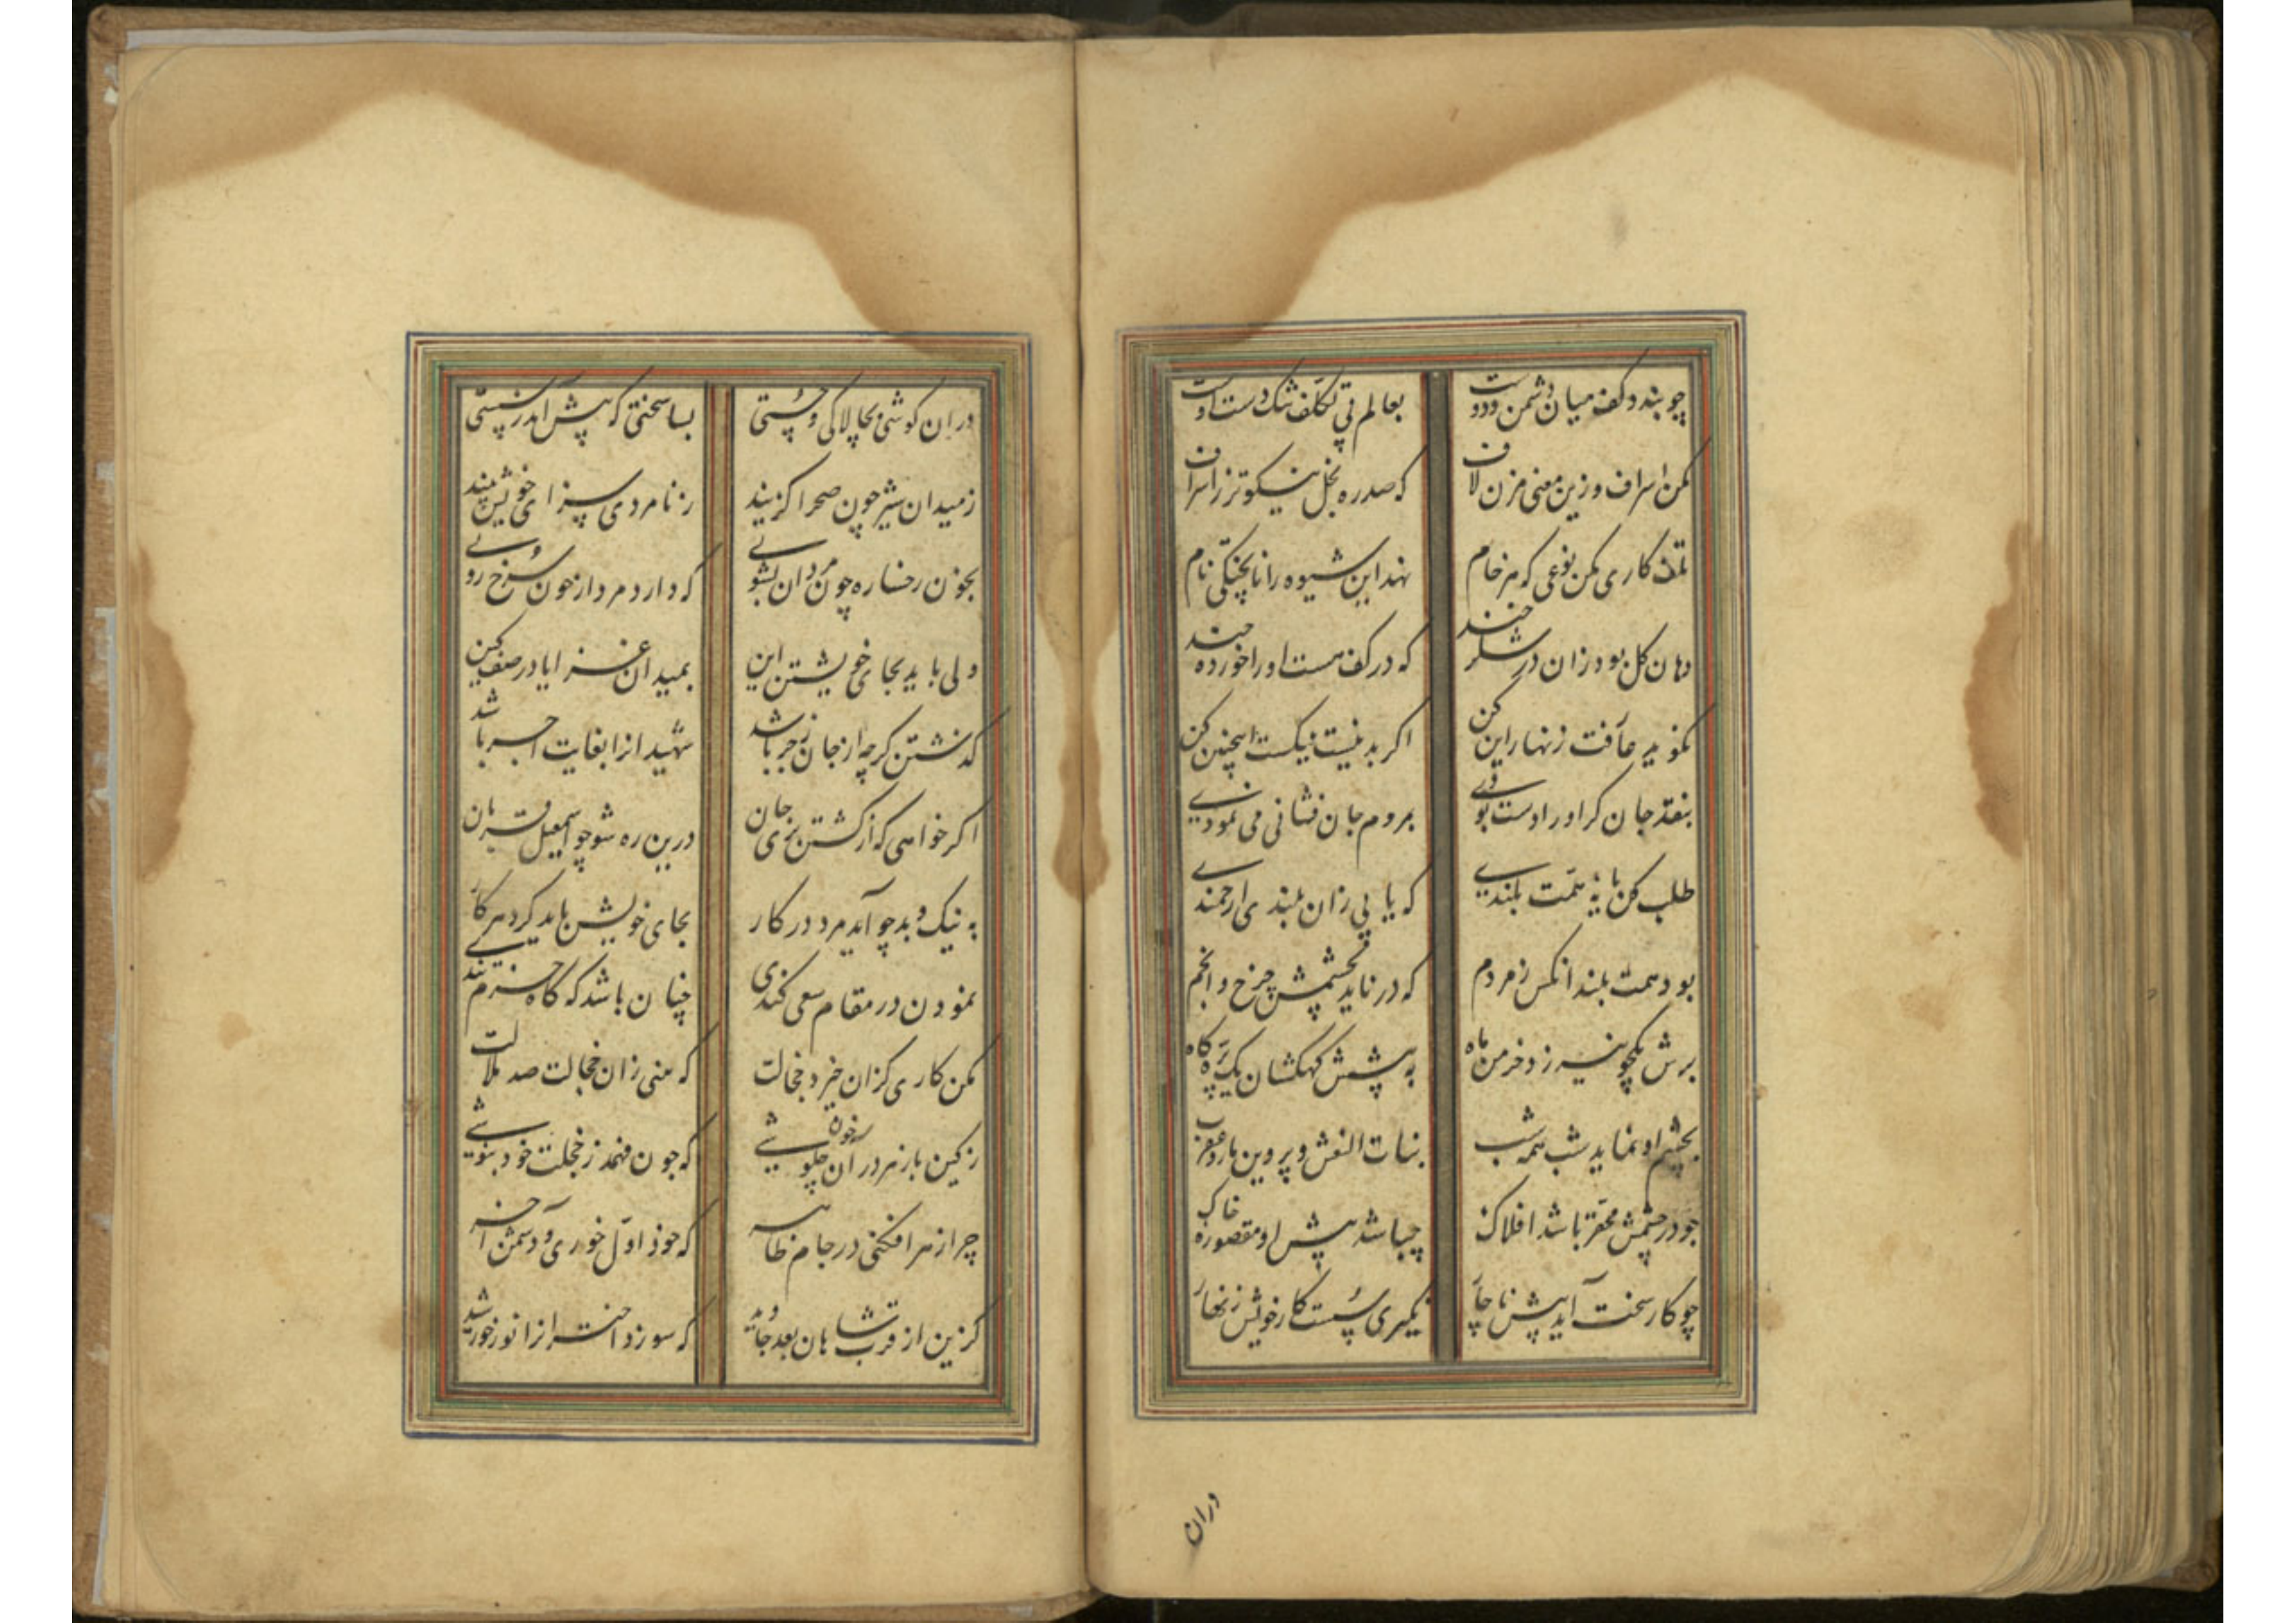 چو بندد کف میان دشمن و دوست بعالم بی تکلف تنک دست اوست
مکن اسراف و زین معنی مزن لاف که صد ره بخل نیکوتر ز اسراف
تلف کاری مکن نوعی که هر خام نهد این شیوه را نا پختگی نام
دهان کل بود زان در شکر خند که در کف هست او را خورده چند
نکویی عافت زنهار این کن اکر بد نیست نیکست اینچنین کن
بنقد جان کر او را دست بودی بمردم جان فشانی می نمودی
طلب کن پایه همت بلندی که یابی زان بلندی ارجمندی
بود همت بلند آنکس ز مردم که در ناید بچشمش چرخ و انجم
برش یکجو نیرزد خرمن ماه به پیشش کهکشان یک پره کاه
بچشم او نماید شب همه شب بنات النعش و پروین مار و عقرب
چو در چشمش محقر باشد افلاک چه باشد پیش او مقصوره خاک
چو کار سخت آید پیش ناچار نکیری سست کار خویش زنهار
دران
دران کوشی بچالاکی و چستی بسا سختی که پیش آمد ز سستی
ز میدان شیر چون صحرا کزیند ز نامردی سزای خویش بیند
بخون رخساره چون مردان بشویی که دارد مرد از خون سرخ رویی
ولی باید بجای خویشتن این بمیدان غزا یا در صف کین
کذشتن کرچه از جان زجر باشد شهید انرا بغایت اجر باشد
اکر خواهی که از کشتن بری جان درین ره شو چو اسمعیل قربان
به نیک و بد چو آید مرد در کار بجای خویش باید کرد هر کار
نمودن در مقام سعی کندی چنان باشد که کاه حزم تندی
مکن کاری کزان خیزد خجالت که بینی زان خجالت صد ملالت
ز کین بازهر در آن چلو شی که چون فهمد ز خجلت خود بنوشی
چرا زهر افکنی در جام ظاهر که خود اول خوری و دشمن آخر
کزین از قرب شاهان بعد جاوید که سوزد اختر از انوار خورشید